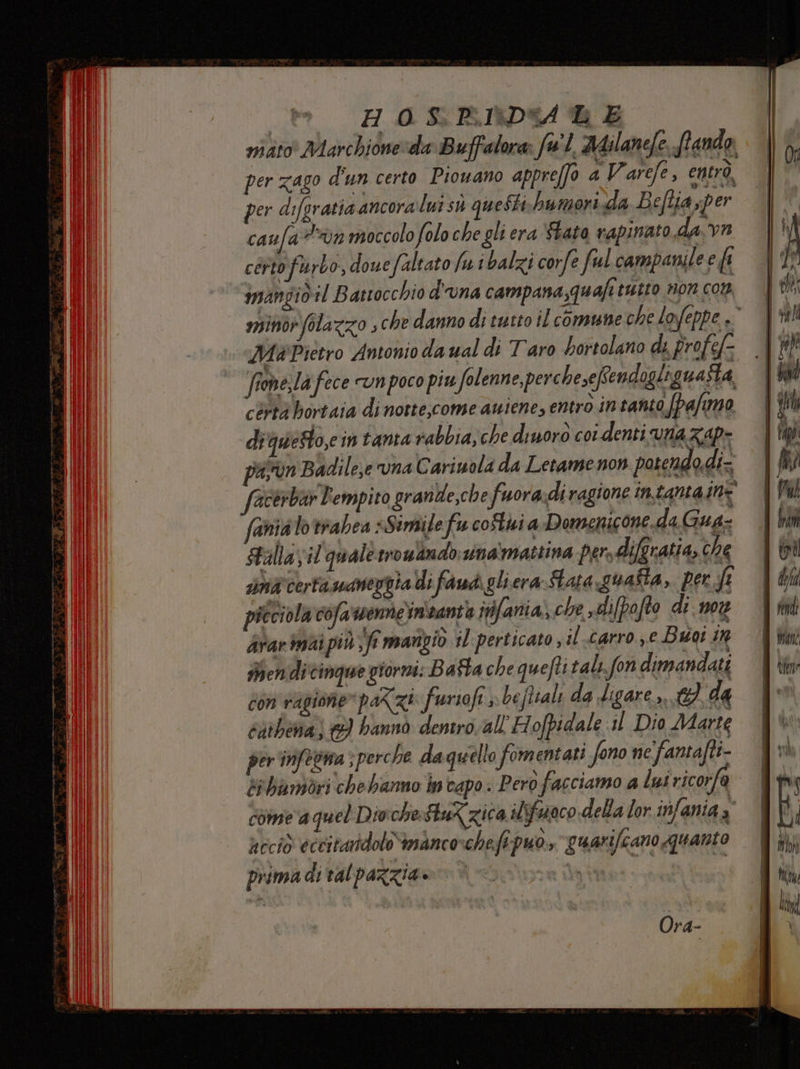 HOSPIDALE
mato Marchione da Buffalora ſu'l Milaneſe, ſtando
per zago d'un certo Piouano appreſſo a Vareſe, entrò
per diſgratia ancora lui sù queſti humori da Beſtia, per
cauſa d'vn moccolo ſolo che gli era ſtato rapinato da vn
certo furbo, doue ſaltato ſu i balzi corſe ſul campanile e ſi
mangiò il Battocchio d'vna campana, quaſi tutto non con
minor ſolazzo, che danno di tutto il comune che lo ſeppe.
Ma Pietro Antonio da ual di Taro hortolano di profeſ-
ſione, la fece vn poco piu ſolenne, perche, eſſendogli guaſta
certa hortaia di notte, come auiene, entrò in tanto ſpaſimo
di queſto, e in tanta rabbia, che diuorò coi denti vna zap-
pa, vn Badile, e vna Cariuola da Letame non potendo di-
ſacerbar l'empito grande, che fuora di ragione in tanta in-
ſania lo trahea: Simile fu coſtui a Domenicone da Gua-
ſtalla, il quale trouando una mattina per diſgratia, che
una certa maneggia di faua gli era ſtata guaſta, per ſi
picciola coſa uenne in tanta inſania, che, diſpoſto di non
arar mai più, ſi mangiò il perticato, il carro, e Buoi in
men di cinque giorni: Baſta che queſti tali, ſon dimandati
con ragione pazzi furioſi, beſtiali da ligare, & da
cathena; & hanno dentro all'Hoſpidale il Dio Marte
per inſegna; perche da quello fomentati ſono ne' fantaſti-
ci humori che hanno in capo. Però facciamo a lui ricorſo
come a quel Dio che ſtuzzica il fuoco della lor inſania,
acciò eccitandolo manco che ſi può, guariſcano quanto
prima di tal pazzia.
Ora-